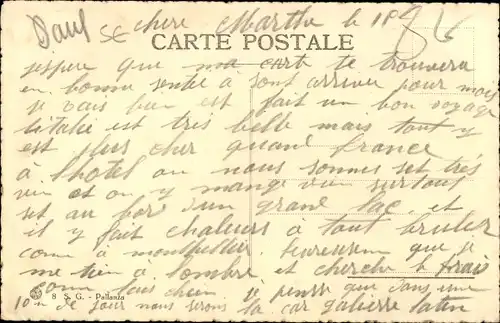 chere Marthe le 18
CARTE POSTALE
jespere que ma carte te trouvera
en bonne sente a sont arrivee pour moi
je vais bien est fait un bon voyage
litalie est tres belle mais tout y
est plus cher quand france
à lhotel ou nous sonnes set très
vien et on y mange vien surtout
set au bor dun grand lac et
il y fait chaleurs à tout bruler
conne à montpellier heureusen que je
me tien à lombre et cherche le frais
conne tous chien je pense que dans une
10n de jour nous serons la car galierre latin
8 S. G. - Pallanza